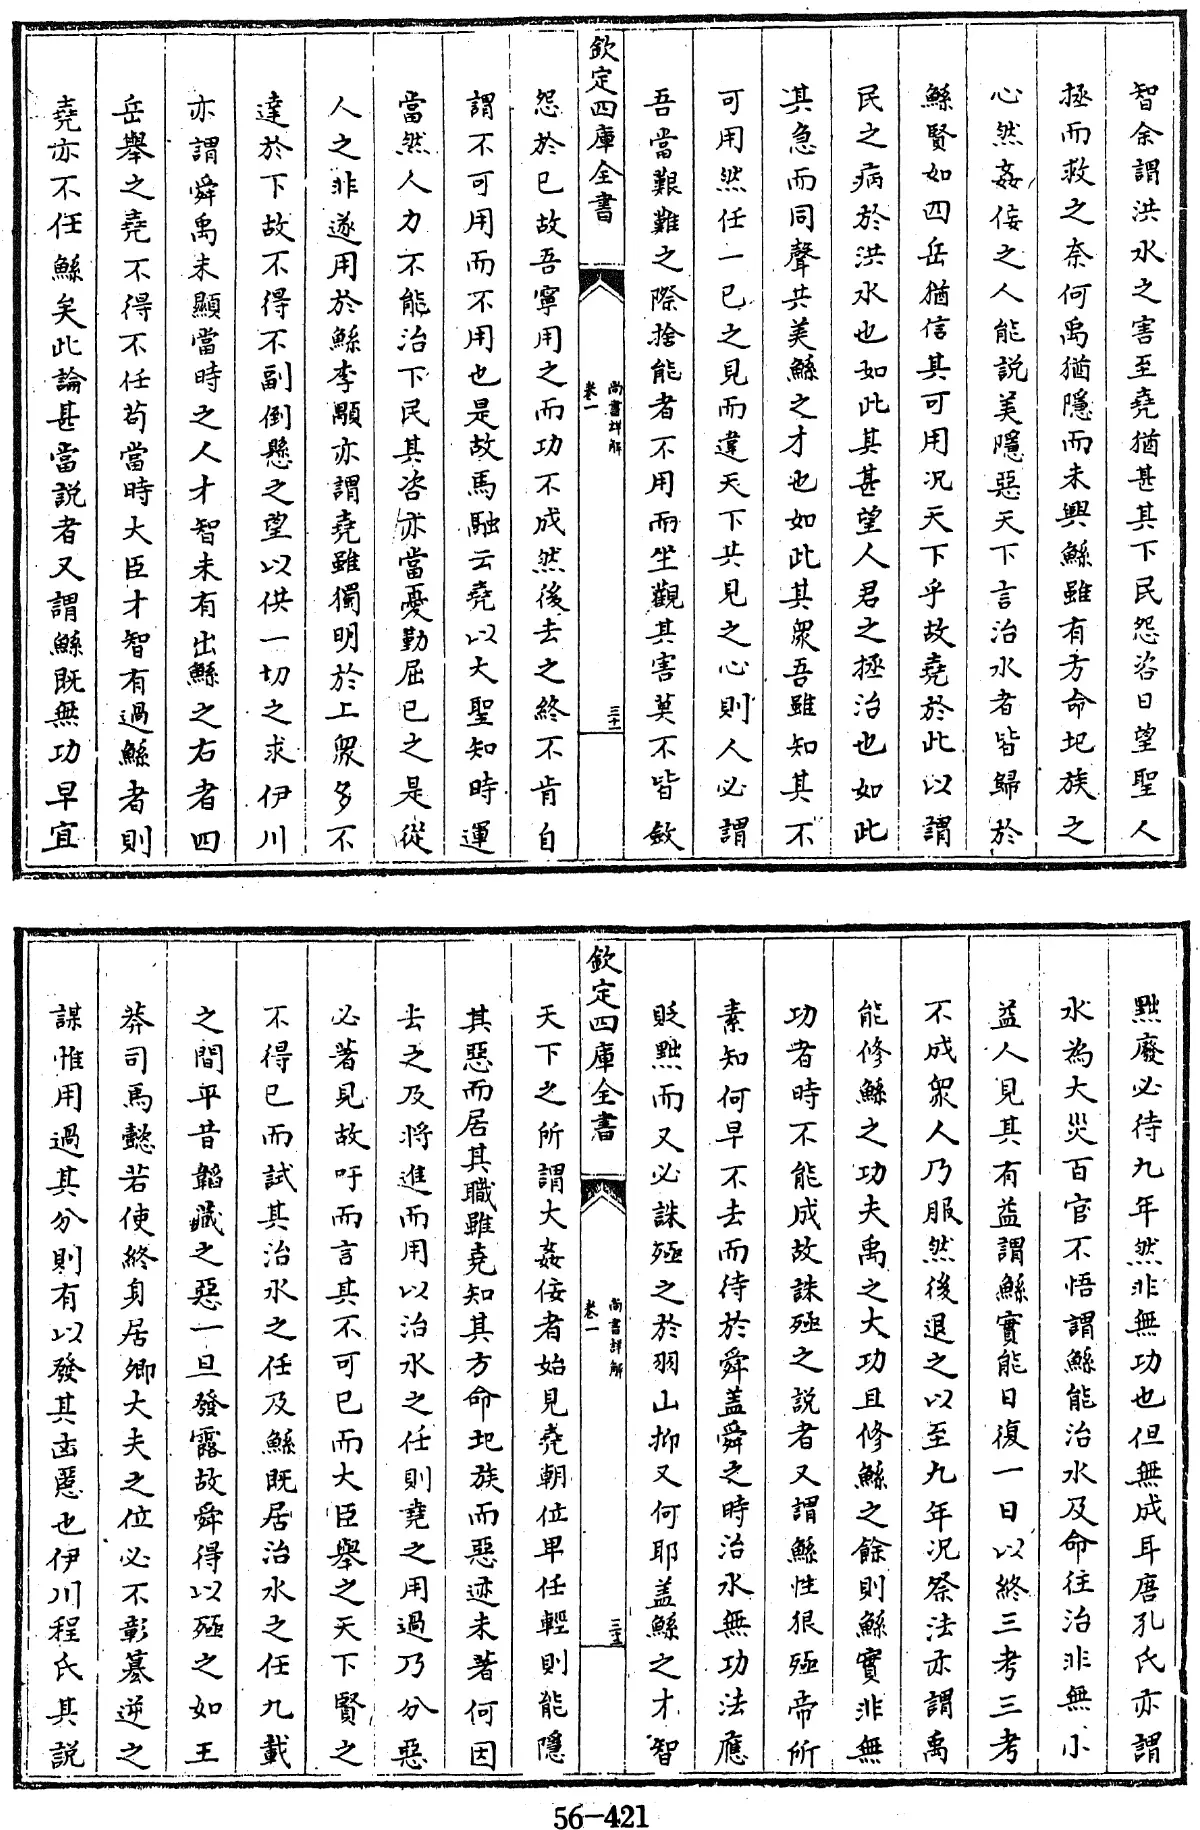 智余謂洪水之害至堯猶甚其下民怨咨日望聖人
拯而救之奈何禹猶隱而未興鯀雖有方命圮族之
心然姦佞之人能說美隱惡天下言治水者皆歸於
鯀賢如四岳猶信其可用況天下乎故堯於此以謂
民之病於洪水也如此其甚望人君之拯治也如此
其急而同聲共美鯀之才也如此其衆吾雖知其不
可用然任一已之見而違天下共見之心則人必謂
吾當艱難之際捨能者不用而坐觀其害莫不皆斂
欽定四庫全書
尚書詳解
卷一
三十一
怨於已故吾寧用之而功不成然後去之終不肯自
謂不可用而不用也是故馬融云堯以大聖知時運
當然人力不能治下民其咨亦當憂勤屈已之是從
人之非遂用於鯀李顒亦謂堯雖獨明於上衆多不
達於下故不得不副倒懸之望以供一切之求伊川
亦謂舜禹未顯當時之人才智未有出鯀之右者四
岳舉之堯不得不任苟當時大臣才智有過鯀者則
堯亦不任鯀矣此論甚當說者又謂鯀既無功早宜
黜廢必待九年然非無功也但無成耳唐孔氏亦謂
水為大災百官不悟謂鯀能治水及命往治非無小
益人見其有益謂鯀實能日復一日以終三考三考
不成衆人乃服然後退之以至九年況祭法亦謂禹
能修鯀之功夫禹之大功且修鯀之餘則鯀實非無
功者時不能成故誅殛之說者又謂鯀性狠殛帝所
素知何早不去而待於舜蓋舜之時治水無功法應
貶黜而又必誅殛之於羽山抑又何耶蓋鯀之才智
欽定四庫全書
尚書詳解
卷一
天下之所謂大姦佞者始見堯朝位卑任輕則能隱
其惡而居其職雖堯知其方命圮族而惡迹未著何因
去之及將進而用以治水之任則堯之用過乃分惡
必著見故吁而言其不可已而大臣舉之天下賢之
不得已而試其治水之任及鯀既居治水之任九載
之間平昔韜藏之惡一旦發露故舜得以殛之如王
莽司馬懿若使終身居卿大夫之位必不彰簒逆之
謀惟用過其分則有以發其凶慝也伊川程氏其說
56-421